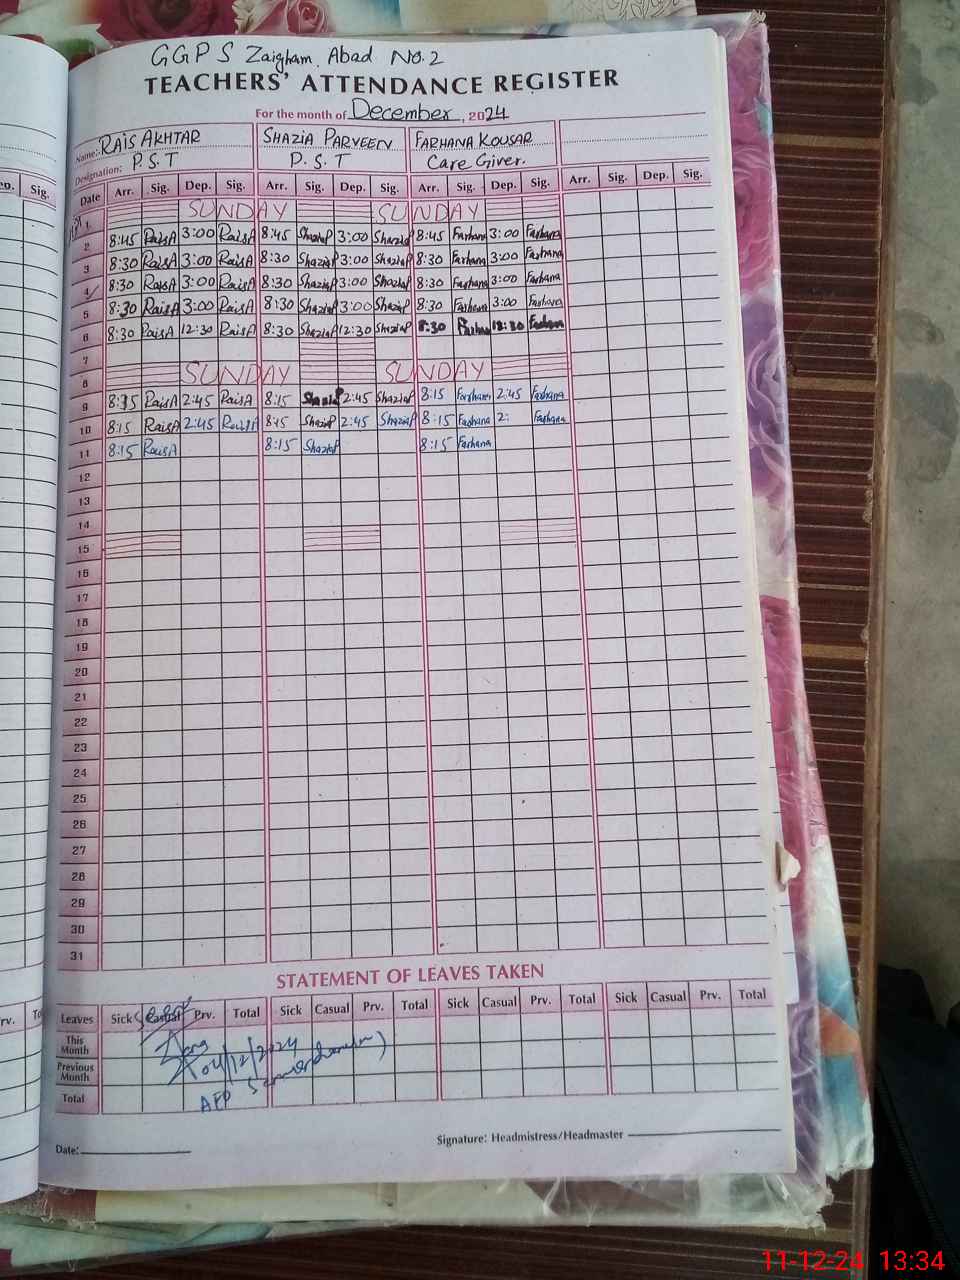 GGPS Zaigham Abad No.2
TEACHERS' ATTENDANCE REGISTER
For the month of December, 2024
Name: RAIS AKHTAR SHAZIA PARVEEN FARHANA KOUSAR
Designation: P.S.T P.S.T Care Giver.
Date Arr. Sig. Dep. Sig. Arr. Sig. Dep. Sig. Arr. Sig. Dep. Sig. Arr. Sig. Dep. Sig.
ep. Sig.
1 SUNDAY SUNDAY
2 8:45 RaisA 3:00 RaisA 8:45 ShaziaP 3:00 ShaziaP 8:45 Farhana 3:00 Farhana
3 8:30 RaisA 3:00 RaisA 8:30 ShaziaP 3:00 ShaziaP 8:30 Farhana 3:00 Farhana
4 8:30 RaisA 3:00 RaisA 8:30 ShaziaP 3:00 ShaziaP 8:30 Farhana 3:00 Farhana
5 8:30 RaisA 3:00 RaisA 8:30 ShaziaP 3:00 ShaziaP 8:30 Farhana 3:00 Farhana
6 8:30 RaisA 12:30 RaisA 8:30 ShaziaP 12:30 ShaziaP 8:30 Farhana 12:30 Farhana
7
8 SUNDAY SUNDAY
9 8:15 RaisA 2:45 RaisA 8:15 Shazia 2:45 ShaziaP 8:15 Farhana 2:45 Farhana
10 8:15 RaisA 2:45 RaisA 8:15 ShaziaP 2:45 ShaziaP 8:15 Farhana 2: Farhana
11 8:15 RaisA 8:15 ShaziaP 8:15 Farhana
12
13
14
15
16
17
18
19
20
21
22
23
24
25
26
27
28
29
30
31
STATEMENT OF LEAVES TAKEN
Leaves Sick Casual Prv. Total Sick Casual Prv. Total Sick Casual Prv. Total Sick Casual Prv. Total
rv. To
This Month
Previous Month
Total
04/12/2024
AEO
Date:
Signature: Headmistress/Headmaster
11-12-24 13:34